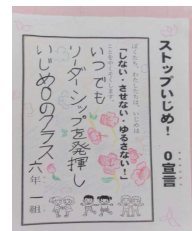 ストップいじめ! 0宣言
ぼくたち、わたしたちは、いじめは
「しない・させない・ゆるさない!」
ことをちかいます。
いつでも
リーダーシップを発揮し
いじめ0のクラス
六年 一組